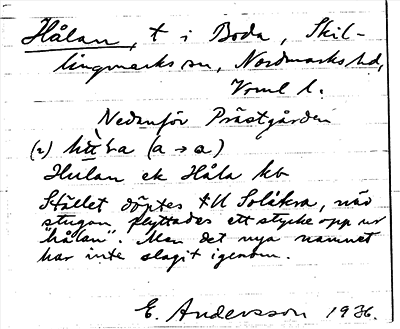 Hålan, t i Boda, Skil-
lingmarks sn, Nordmarks hd,
Vrml l.
Nedanför Prästgården
(2) (a → a)
Hulan ek Håla kb
Stället döptes till Solåkra, när
stugan flyttades ett stycke opp ur
"hålan". Men det nya namnet
har inte slagit igenom.
E. Andersson 1936.